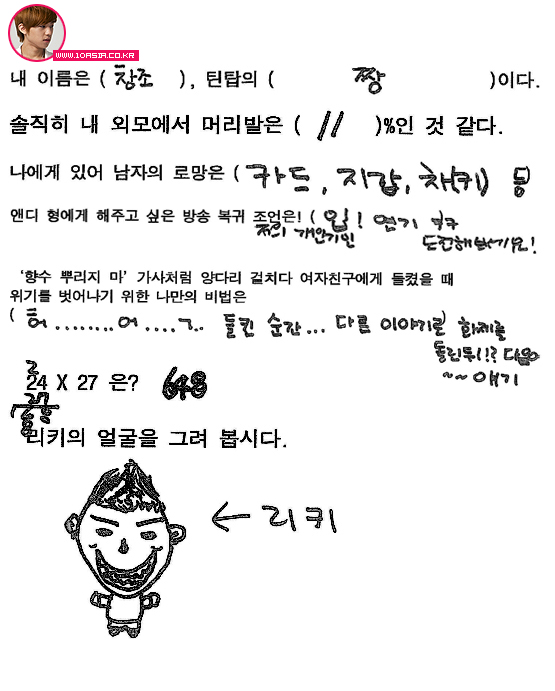 WWW.10ASIA.CO.KR
내 이름은 ( 창조 ), 틴탑의 ( 짱 )이다.
솔직히 내 외모에서 머리발은 ( // )%인 것 같다.
나에게 있어 남자의 로망은 ( 카드, 지갑, 차(키) 등
앤디 형에게 해주고 싶은 방송 복귀 조언은! ( 입! 연기
저의 개인기인 도전해보세요!
'향수 뿌리지 마' 가사처럼 양다리 걸치다 여자친구에게 들켰을 때
위기를 벗어나기 위한 나만의 비법은
( 허........어....그.. 들킨 순간... 다른 이야기로 화제를
돌린뒤!? 다음
~~ 얘기
24 X 27 은? 648
리키의 얼굴을 그려 봅시다.
← 리키